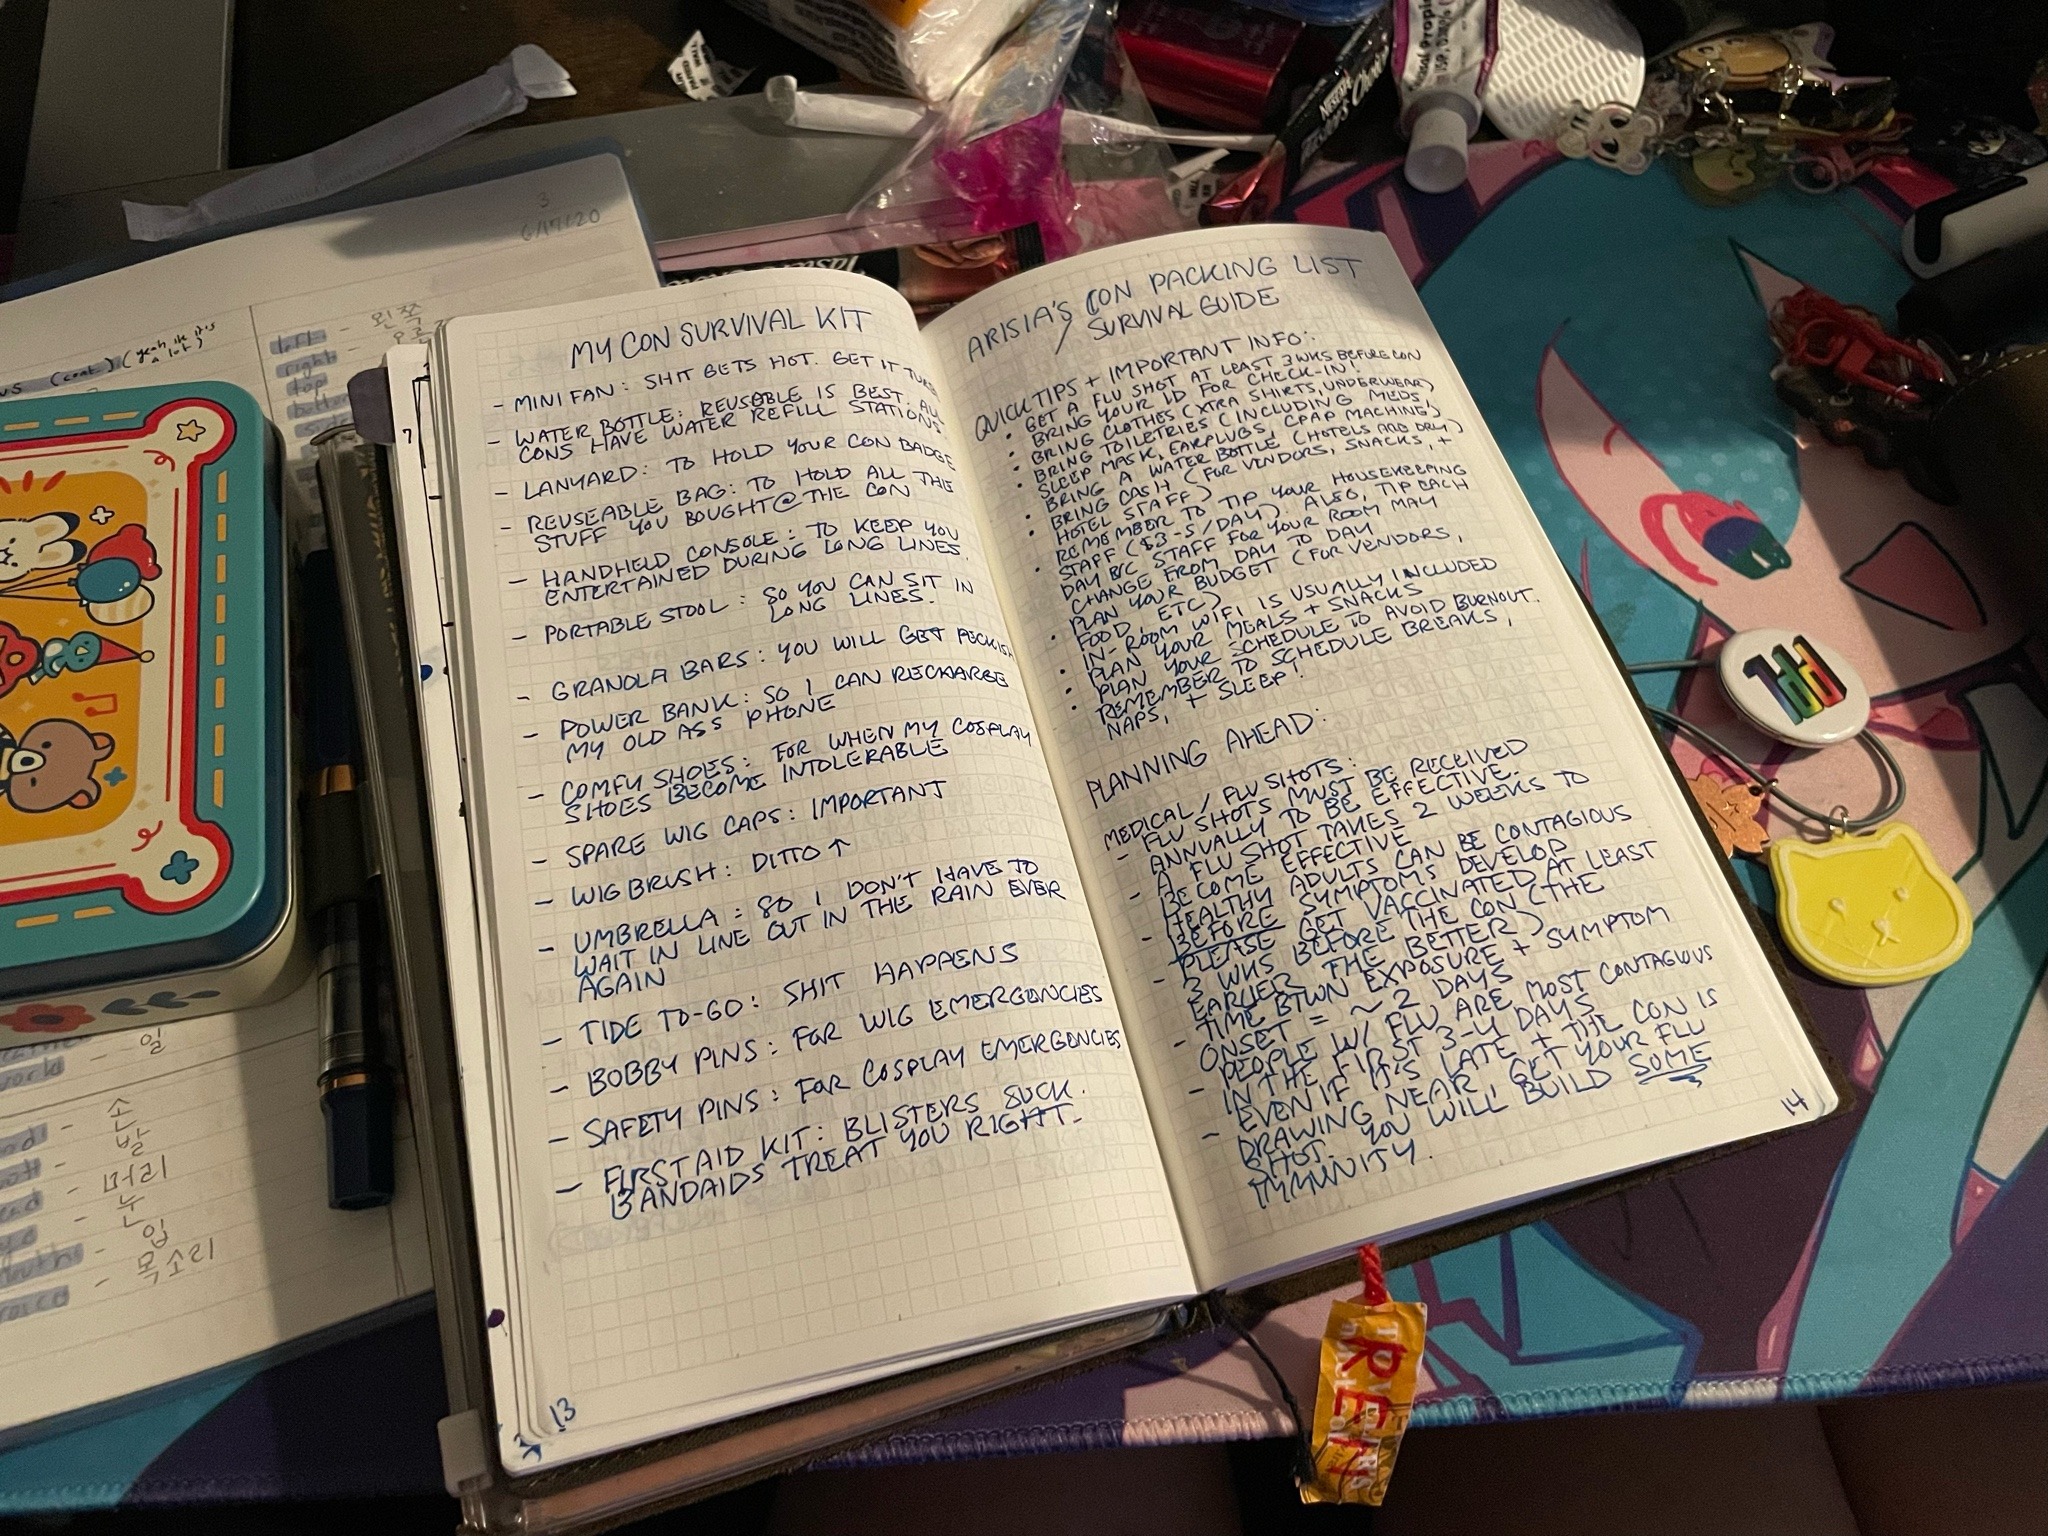 MY CON SURVIVAL KIT
- MINI FAN: SHIT GETS HOT. GET IT
- WATER BOTTLE: REUSABLE IS BEST. ALL
CONS HAVE WATER REFILL STATIONS.
- LANYARD: TO HOLD YOUR CON BADGE
- REUSEABLE BAG: TO HOLD ALL THE
STUFF YOU BOUGHT @ THE CON
- HANDHELD CONSOLE: TO KEEP YOU
ENTERTAINED DURING LONG LINES.
- PORTABLE STOOL: SO YOU CAN SIT IN
LONG LINES.
- GRANOLA BARS: YOU WILL GET PECKISH
- POWER BANK: SO I CAN RECKARGE
MY OLD ASS PHONE
- COMFY SHOES: FOR WHEN MY COSPLAY
SHOES BECOME INTOLERABLE
- SPARE WIG CAPS: IMPORTANT
- WIG BRUSH: DITTO ↑
- UMBRELLA: SO I DON'T HAVE TO
WAIT IN LINE OUT IN THE RAIN EVER
AGAIN
- TIDE TO-GO: SHIT HAPPENS
- BOBBY PINS: FOR WIG EMERGENCIES
- SAFETY PINS: FOR COSPLAY EMERGENCIES
- FIRST AID KIT: BLISTERS SUCK.
BANDAIDS TREAT YOU RIGHT.
13
ARISIA'S CON PACKING LIST
/ SURVIVAL GUIDE
QUICK TIPS + IMPORTANT INFO:
• GET A FLU SHOT AT LEAST 3 WKS BEFORE CON
• BRING YOUR ID FOR CHECK-IN!
• BRING CLOTHES (XTRA SHIRTS, UNDERWEAR)
• BRING TOILETRIES (INCLUDING MEDS,
SLEEP MASK, EARPLUGS, CPAP MACHINE)
• BRING A WATER BOTTLE (HOTELS ARE DRY)
• BRING CASH (FOR VENDORS, SNACKS, +
HOTEL STAFF)
• REMEMBER TO TIP YOUR HOUSEKEEPING
STAFF ($3-5/DAY). ALSO, TIP EACH
DAY B/C STAFF FOR YOUR ROOM MAY
CHANGE FROM DAY TO DAY
• PLAN YOUR BUDGET (FOR VENDORS,
FOOD, ETC)
• IN-ROOM WIFI IS USUALLY INCLUDED
• PLAN YOUR MEALS + SNACKS
• PLAN YOUR SCHEDULE TO AVOID BURNOUT.
REMEMBER TO SCHEDULE BREAKS,
NAPS, + SLEEP!
PLANNING AHEAD:
MEDICAL / FLU SHOTS:
- FLU SHOTS MUST BE RECEIVED
ANNUALLY TO BE EFFECTIVE.
A FLU SHOT TAKES 2 WEEKS TO
BECOME EFFECTIVE
- HEALTHY ADULTS CAN BE CONTAGIOUS
BEFORE SYMPTOMS DEVELOP
- PLEASE GET VACCINATED AT LEAST
3 WKS BEFORE THE CON (THE
EARLIER THE BETTER)
- TIME BTWN EXPOSURE + SYMPTOM
ONSET = ~ 2 DAYS
- PEOPLE W/ FLU ARE MOST CONTAGIOUS
IN THE FIRST 3-4 DAYS
- EVEN IF IT'S LATE + THE CON IS
DRAWING NEAR, GET YOUR FLU
SHOT. YOU WILL BUILD SOME
IMMUNITY.
14
3
6/17/20
(cont.) (yeah, it's
a lot)
left - 왼쪽
right
top
7
world
- 일
- 손
- 발
- 머리
- 눈
- 입
- 목소리
1dd1